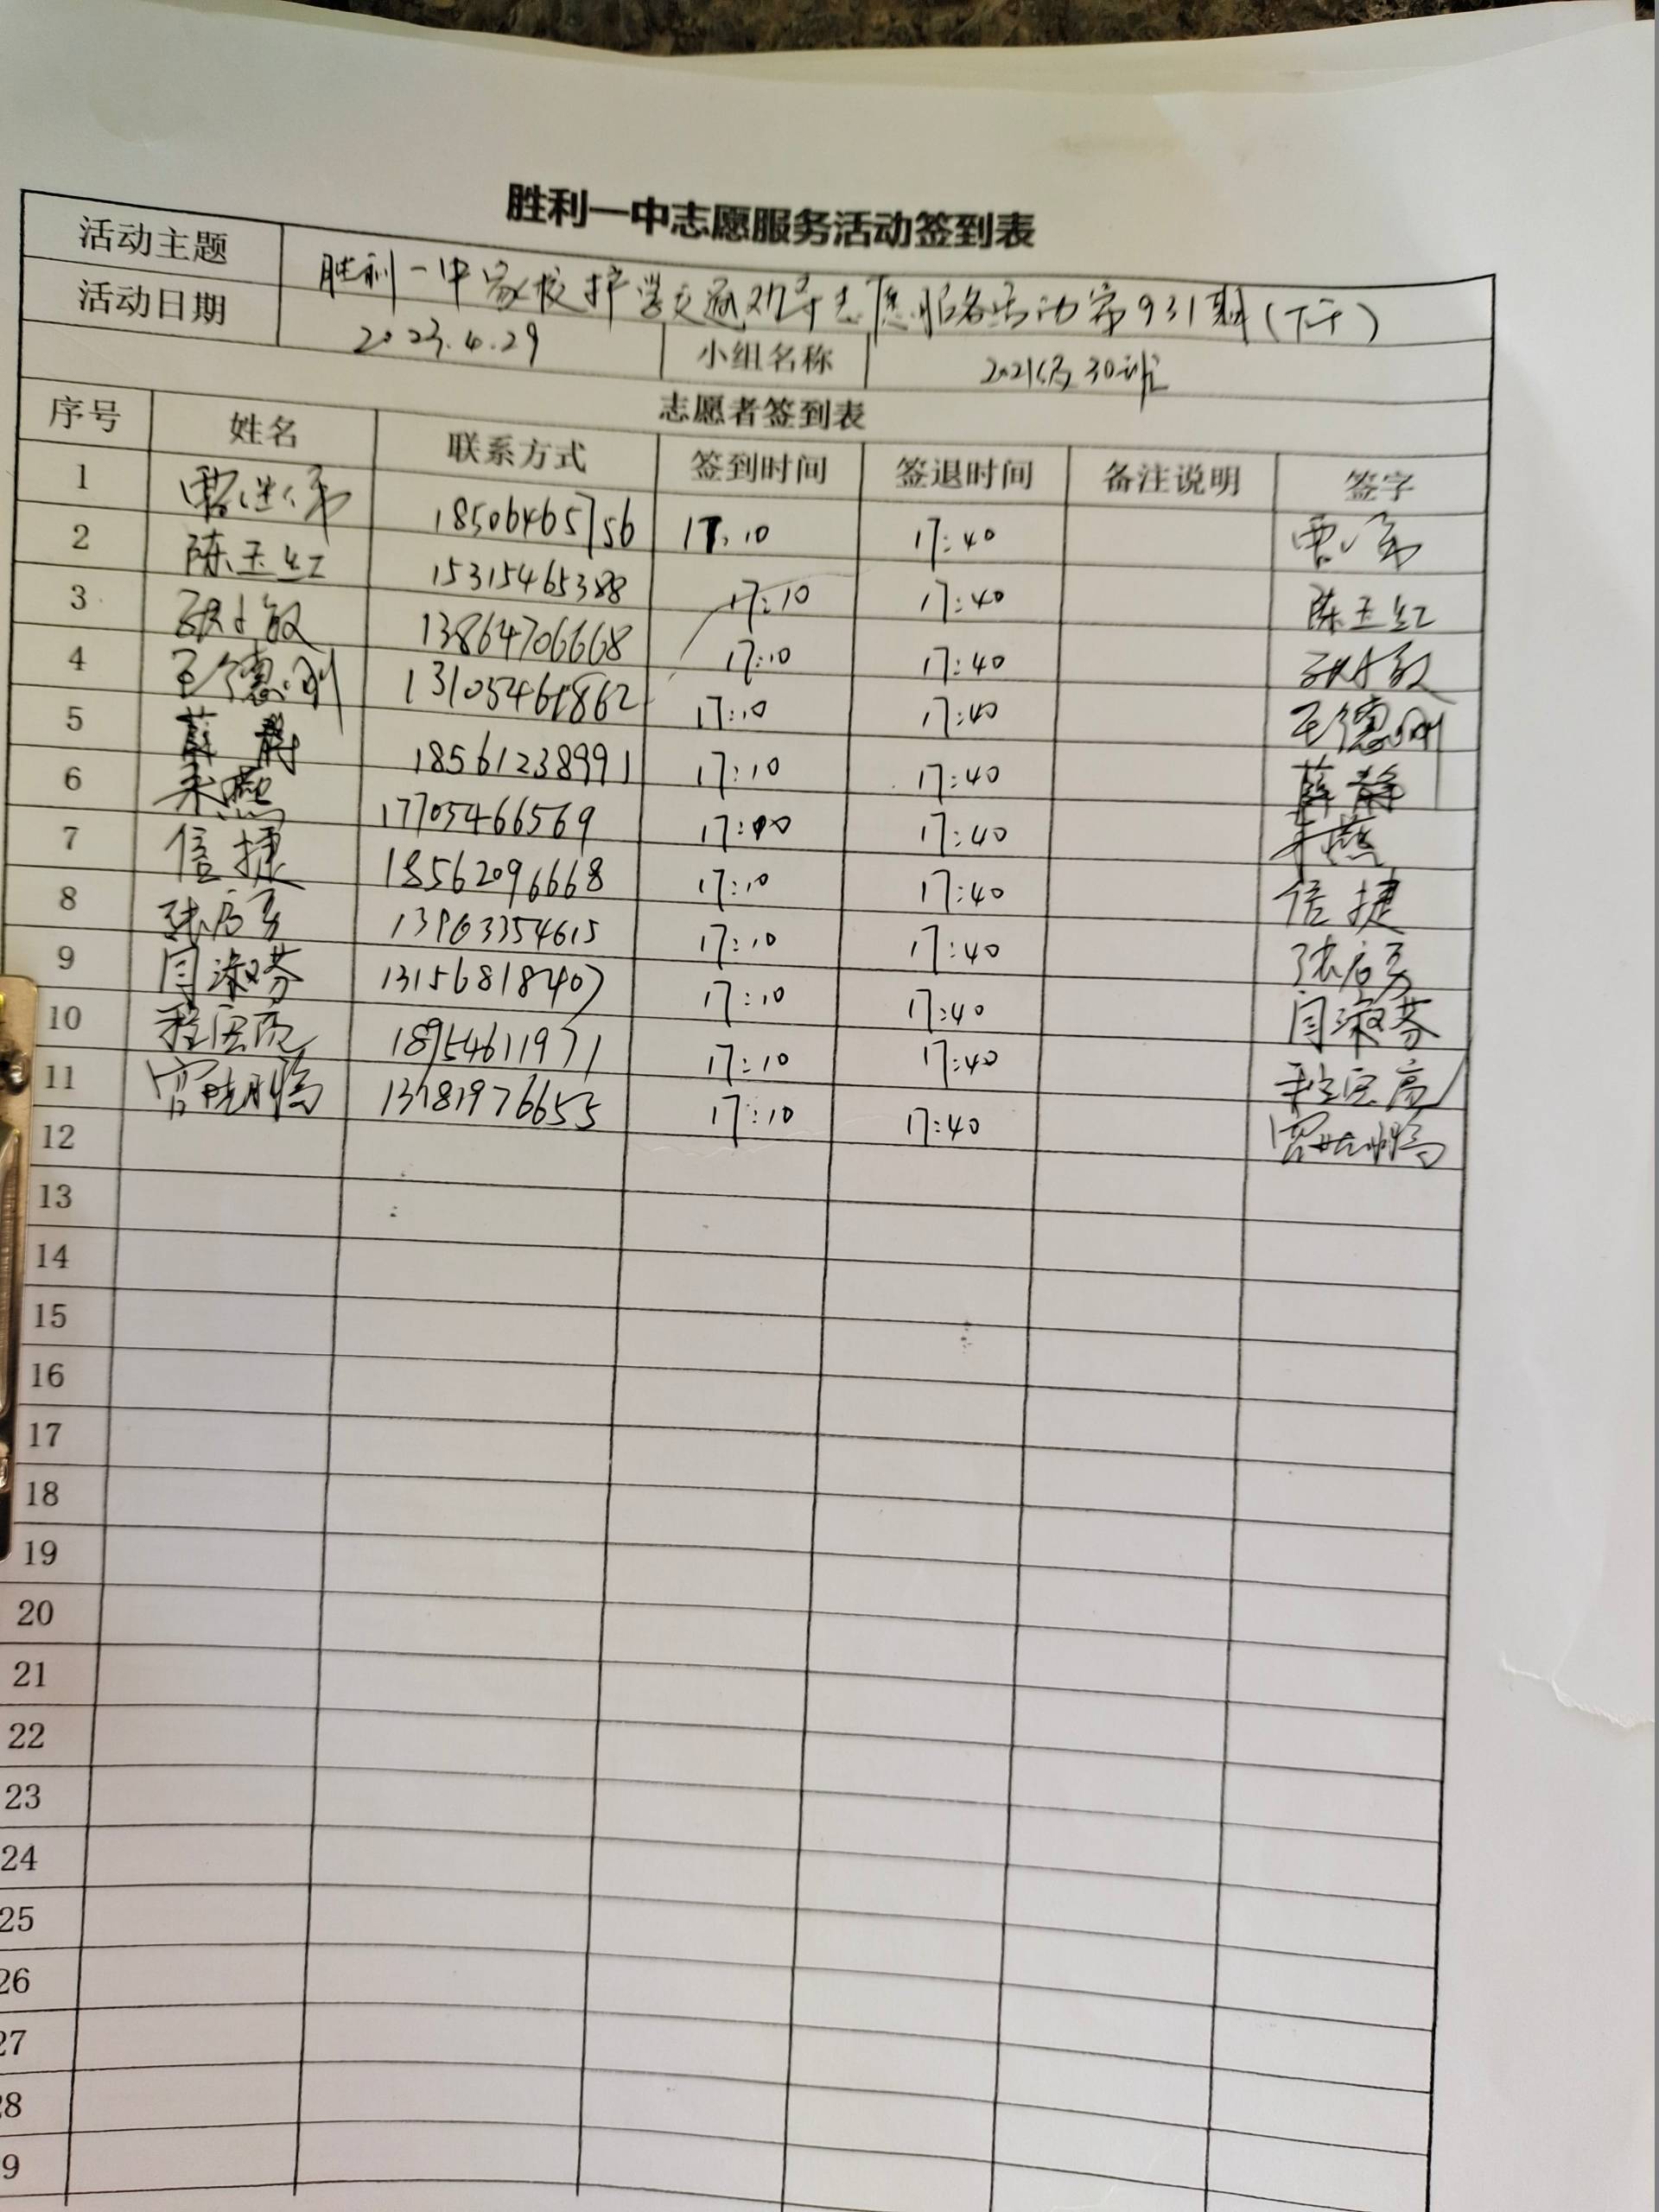 胜利一中志愿服务活动签到表
活动主题 胜利一中家校护学交通劝导志愿服务活动第931期(下午)
活动日期 2023.4.29 小组名称 2021级30班
志愿者签到表
序号 姓名 联系方式 签到时间 签退时间 备注说明 签字
1 18506465756 17:10 17:40
2 陈玉红 15315465388 17:10 17:40 陈玉红
3 13864706668 17:10 17:40
4 王德刚 13105461862 17:10 17:40 王德刚
5 薛静 18561238991 17:10 17:40 薛静
6 燕 17705466569 17:10 17:40 燕
7 信捷 18562096668 17:10 17:40 信捷
8 13963354615 17:10 17:40
9 闫淑芬 13156818407 17:10 17:40 闫淑芬
10 18954611971 17:10 17:40
11 17:10 17:40
12
13
14
15
16
17
18
19
20
21
22
23
24
25
26
27
28
9